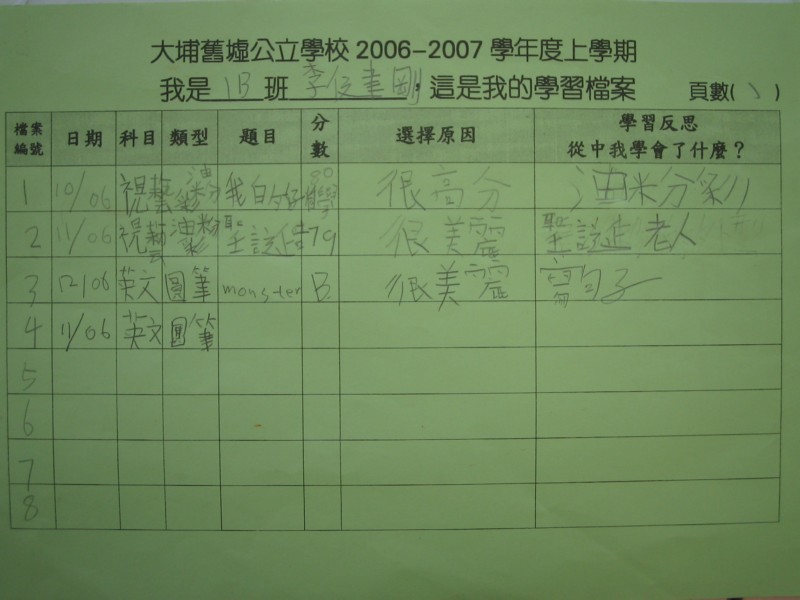 大埔舊墟公立學校 2006-2007 學年度上學期
我是 1B 班 李 剛，這是我的學習檔案 頁數( )
檔案編號 日期 科目 類型 題目 分數 選擇原因 學習反思 從中我學會了什麼？
1 10/06 視藝 油粉彩 我自 80 很高分 油粉彩
2 11/06 視藝 油粉彩 聖誕 79 很美麗 聖誕老人
3 12/06 英文 圓筆 monster B 很美麗 寫句子
4 11/06 英文 圓筆
5
6
7
8